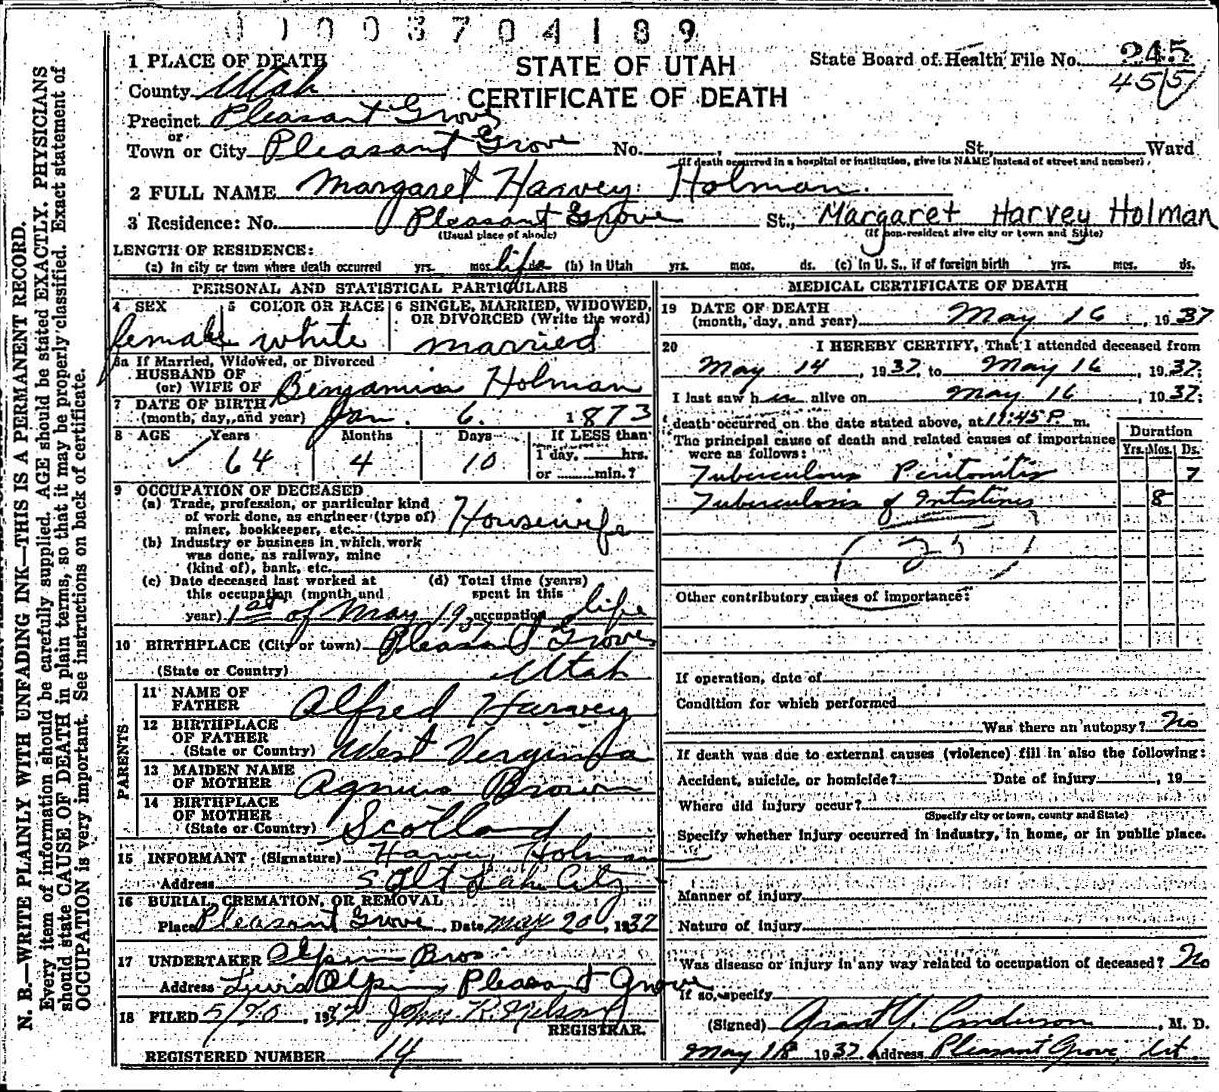 0 1 0 0 3 7 0 4 1 8 9
1 PLACE OF DEATH
STATE OF UTAH
State Board of Health File No. 245
County Utah
CERTIFICATE OF DEATH
45/5
Precinct Pleasant Grove
or
Town or City Pleasant Grove No. , St., Ward
(If death occurred in a hospital or institution, give its NAME instead of street and number)
2 FULL NAME Margaret Harvey Holman
3 Residence: No. Pleasant Grove St., Margaret Harvey Holman
(Usual place of abode) (If non-resident give city or town and State)
LENGTH OF RESIDENCE:
(a) In city or town where death occurred yrs. mos. life ds. (b) In Utah yrs. mos. ds. (c) In U. S., if of foreign birth yrs. mos. ds.
PERSONAL AND STATISTICAL PARTICULARS
4 SEX female
5 COLOR OR RACE white
6 SINGLE, MARRIED, WIDOWED,
OR DIVORCED (Write the word)
married
6a If Married, Widowed, or Divorced
HUSBAND OF
(or) WIFE OF Benjamin Holman
7 DATE OF BIRTH
(month, day, and year) Jan. 6. 1873
8 AGE Years Months Days If LESS than
64 4 10 1 day, hrs.
or min.?
9 OCCUPATION OF DECEASED
(a) Trade, profession, or particular kind
of work done, as engineer (type of)
miner, bookkeeper, etc. Housewife
(b) Industry or business in which work
was done, as railway, mine
(kind of), bank, etc.
(c) Date deceased last worked at
this occupation (month and
year) 1st of May 1937
(d) Total time (years)
spent in this
occupation life
10 BIRTHPLACE (City or town) Pleasant Grove
(State or Country) Utah
PARENTS
11 NAME OF
FATHER Alfred Harvey
12 BIRTHPLACE
OF FATHER
(State or Country) West Verginia
13 MAIDEN NAME
OF MOTHER Agnus Brown
14 BIRTHPLACE
OF MOTHER
(State or Country) Scotland
15 INFORMANT (Signature) Harvey Holman
Address Salt Lake City
16 BURIAL, CREMATION, OR REMOVAL
Place Pleasant Grove Date May 20, 1937
17 UNDERTAKER Olpin Bros
Address Pleasant Grove
18 FILED 5/20, 1937 John R. Nelson
REGISTRAR.
REGISTERED NUMBER 14
MEDICAL CERTIFICATE OF DEATH
19 DATE OF DEATH
(month, day, and year) May 16, 1937
20 I HEREBY CERTIFY, That I attended deceased from
May 14, 1937, to May 16, 1937:
I last saw h alive on May 16, 1937;
death occurred on the date stated above, at 11:45 P. m.
The principal cause of death and related causes of importance
were as follows:
Duration
Yrs. Mos. Ds.
Tuberculous Peritonitis 7
Tuberculosis of Intestines 8
Other contributory causes of importance:
If operation, date of
Condition for which performed
Was there an autopsy? No
If death was due to external causes (violence) fill in also the following:
Accident, suicide, or homicide? Date of injury , 19
Where did injury occur?
(Specify city or town, county and State)
Specify whether injury occurred in industry, in home, or in public place.
Manner of injury
Nature of injury
Was disease or injury in any way related to occupation of deceased? No
If so, specify
(Signed) Grant Y. Anderson, M. D.
May 18 1937 Address Pleasant Grove, Ut.
N. B.—WRITE PLAINLY WITH UNFADING INK—THIS IS A PERMANENT RECORD.
Every item of information should be carefully supplied. AGE should be stated EXACTLY. PHYSICIANS
should state CAUSE OF DEATH in plain terms, so that it may be properly classified. Exact statement of
OCCUPATION is very important. See instructions on back of certificate.